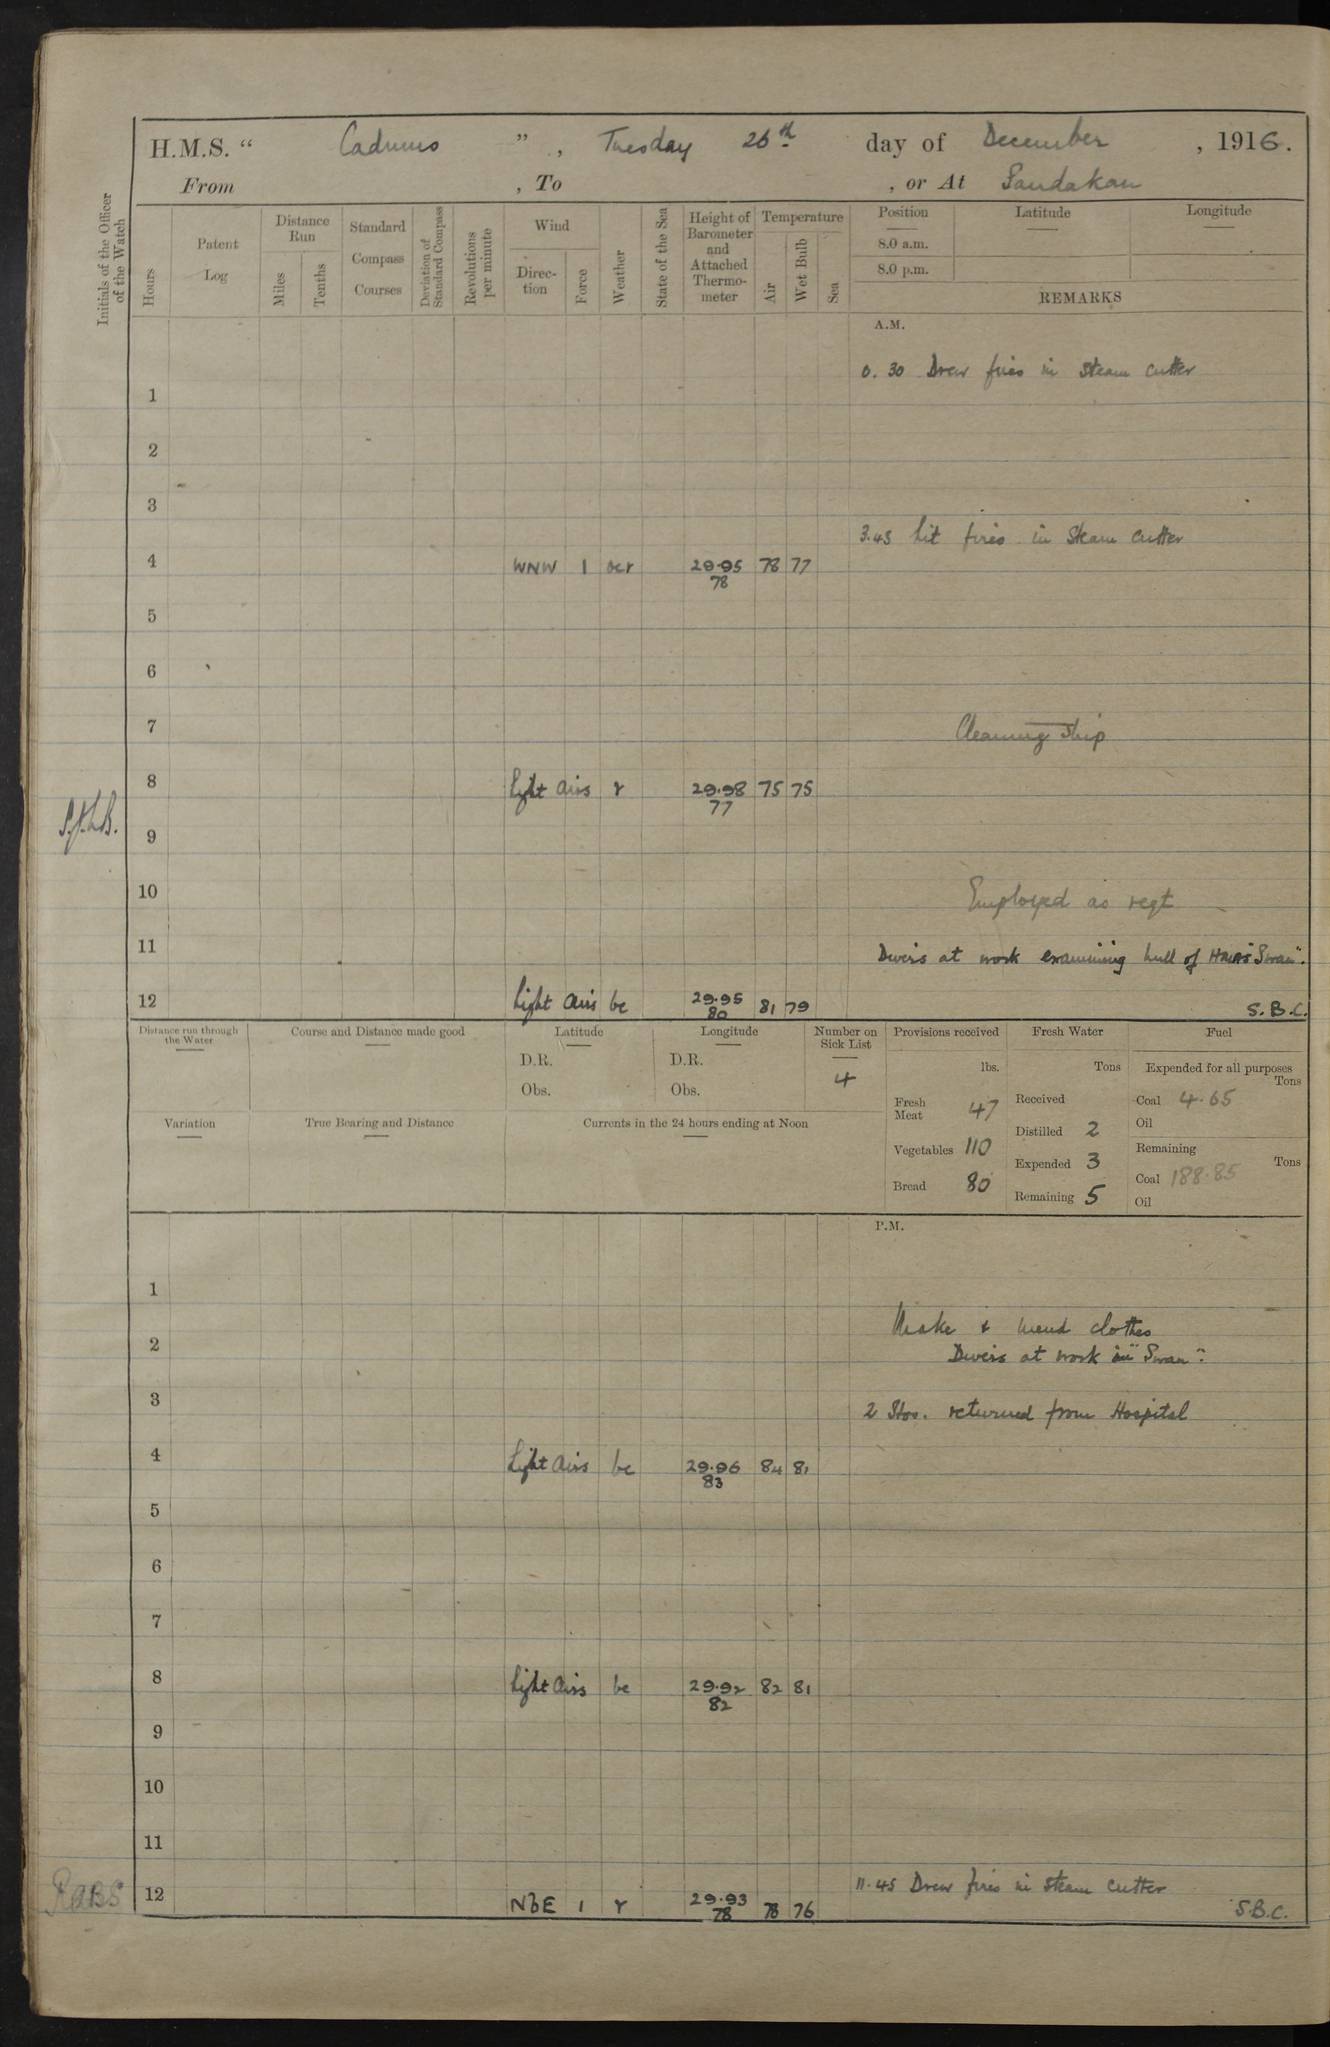 H.M.S. “ Cadmus ” , Tuesday 26th day of December , 1916.
From , To , or At Sandakan
Initials of the Officer of the Watch
Hours
Patent Log
Distance Run
Miles
Tenths
Standard Compass Courses
Deviation of Standard Compass
Revolutions per minute
Wind
Direc-tion
Force
Weather
State of the Sea
Height of Barometer and Attached Thermo-meter
Temperature
Air
Wet Bulb
Sea
Position
Latitude
Longitude
8.0 a.m.
8.0 p.m.
REMARKS
A.M.
0.30 Drew fires in Steam Cutter
1
2
3
3.45 Lit fires in Steam Cutter
4 WNW 1 ocr 29.95 78 77
78
5
6
7 Cleaning Ship
8 Light airs r 29.98 75 75
77
9
10 Employed as reqt
11 Divers at work examining hull of HMAS "Swan".
12 Light airs bc 29.95 81 79
80
S.B.C.
Distance run through the Water
Course and Distance made good
Latitude
D.R.
Obs.
Longitude
D.R.
Obs.
Number on Sick List
4
Provisions received
lbs.
Fresh Meat 47
Vegetables 110
Bread 80
Fresh Water
Tons
Received
Distilled 2
Expended 3
Remaining 5
Fuel
Expended for all purposes
Tons
Coal 4.65
Oil
Remaining
Tons
Coal 188.85
Oil
Variation
True Bearing and Distance
Currents in the 24 hours ending at Noon
P.M.
1
Make & mend clothes
2 Divers at work in "Swan".
3 2 Stos. returned from Hospital
4 Light airs bc 29.96 84 81
83
5
6
7
8 Light airs bc 29.92 82 81
82
9
10
11
11.45 Drew fires in Steam Cutter
12 NbE 1 r 29.93 78 76
78
S.B.C.